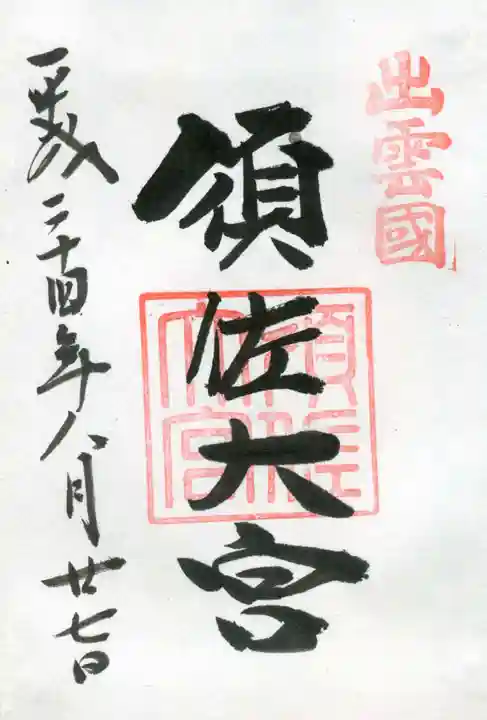 出雲國
須佐大宮
須佐大宮
平成二十四年八月廿七日